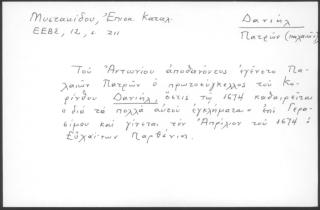 Μυστακίδου, Ἐπισκ. Καταλ.
ΕΕΒΣ, 12, σ. 211
Δανιήλ
Πατρῶν (παλαιῶν)
Τοῦ Ἀντωνίου ἀποθανόντος ἐγένετο Πα-
λαιῶν Πατρῶν ὁ πρωτοσύγκελλος τοῦ Κο-
ρίνθου Δανιήλ, ὅστις τῷ 1674 καθαιρεῖται
"διὰ τὰ πολλὰ αὐτοῦ ἐγκλήματα" ἐπὶ Γερα-
σίμου καὶ γίνεται τὸν Ἀπρίλιον τοῦ 1674 ὁ
Εὐχαΐτων Παρθένιος.